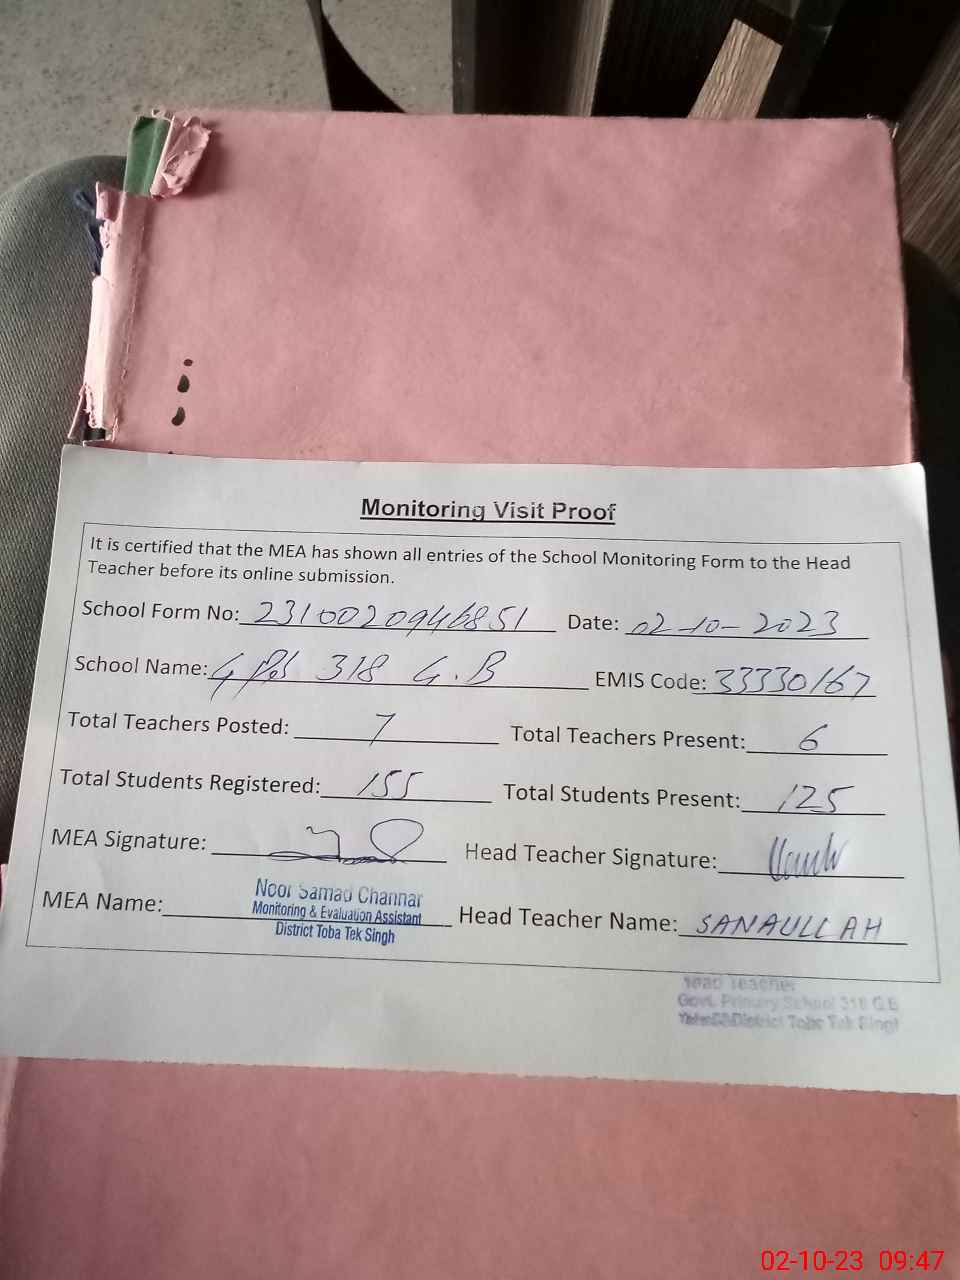 Monitoring Visit Proof
It is certified that the MEA has shown all entries of the School Monitoring Form to the Head
Teacher before its online submission.
School Form No: 2310020946851 Date: 02-10-2023
School Name: GPS 318 G.B EMIS Code: 33330167
Total Teachers Posted: 7 Total Teachers Present: 6
Total Students Registered: 155 Total Students Present: 125
MEA Signature: Head Teacher Signature:
MEA Name: Noor Samad Channar
Monitoring & Evaluation Assistant
District Toba Tek Singh
Head Teacher Name: SANAULLAH
Head Teacher
Govt. Primary School 318 G.B
District Toba Tek Singh
02-10-23 09:47